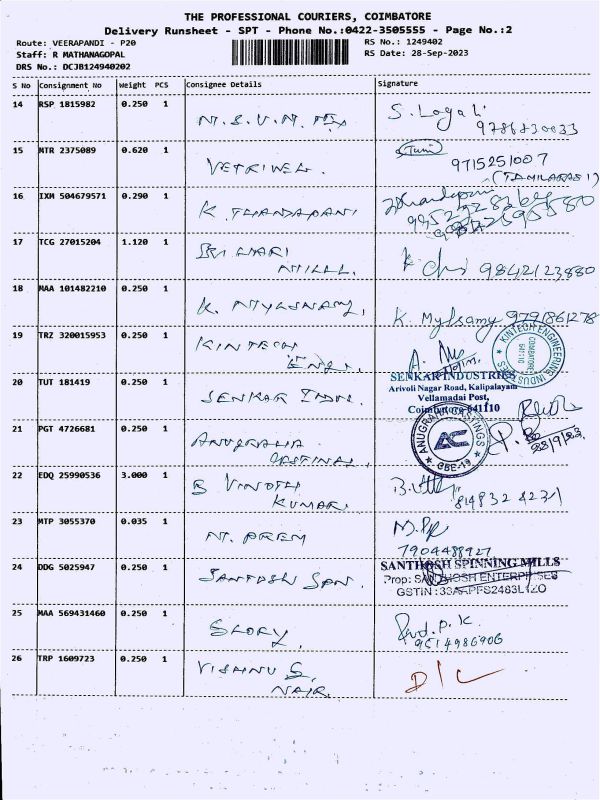 THE PROFESSIONAL COURIERS, COIMBATORE
Delivery Runsheet - SPT - Phone No.:0422-3505555 - Page No.:2
Route: VEERAPANDI - P20 RS No.: 1249402
Staff: R MATHANAGOPAL RS Date: 28-Sep-2023
DRS No.: DCJB124940202
S No Consignment No Weight PCS Consignee Details Signature
14 RSP 1815982 0.250 1
15 MTR 2375089 0.620 1 VETRIVEL.
9715251007
(TAMILARASI)
16 IXM 504679571 0.290 1 K. THANDAPANI
17 TCG 27015204 1.120 1 SRI HARI
MILLL. 9842123880
18 MAA 101482210 0.250 1 K. MYLSNAMY, K. Mylsamy 9791861278
19 TRZ 320015953 0.250 1 KINTECH
ENGI.
KINTECH ENGINEERING INDUSTRIES
COIMBATORE
641110
20 TUT 181419 0.250 1 SENKAR INDN.
SENKAR INDUSTRIES
Arivoli Nagar Road, Kalipalayam
Vellamadai Post,
Coimbatore 641110
21 PGT 4726681 0.250 1 ANUGRAHA
CASTINGS,
ANUGRAHA CASTINGS
AC
CBE-19
28/9/23
22 EDQ 25990536 3.000 1 B VINOTH
KUMAR.
23 MTP 3055370 0.035 1 M. PREM
7904488927
24 DDG 5025947 0.250 1 SANTOSH SPN.
SANTHOSH SPINNING MILLS
Prop: SANTHOSH ENTERPRISES
25 MAA 569431460 0.250 1 GLORY,
9514986906
26 TRP 1609723 0.250 1 VISHNU S,
NAIR. D/C